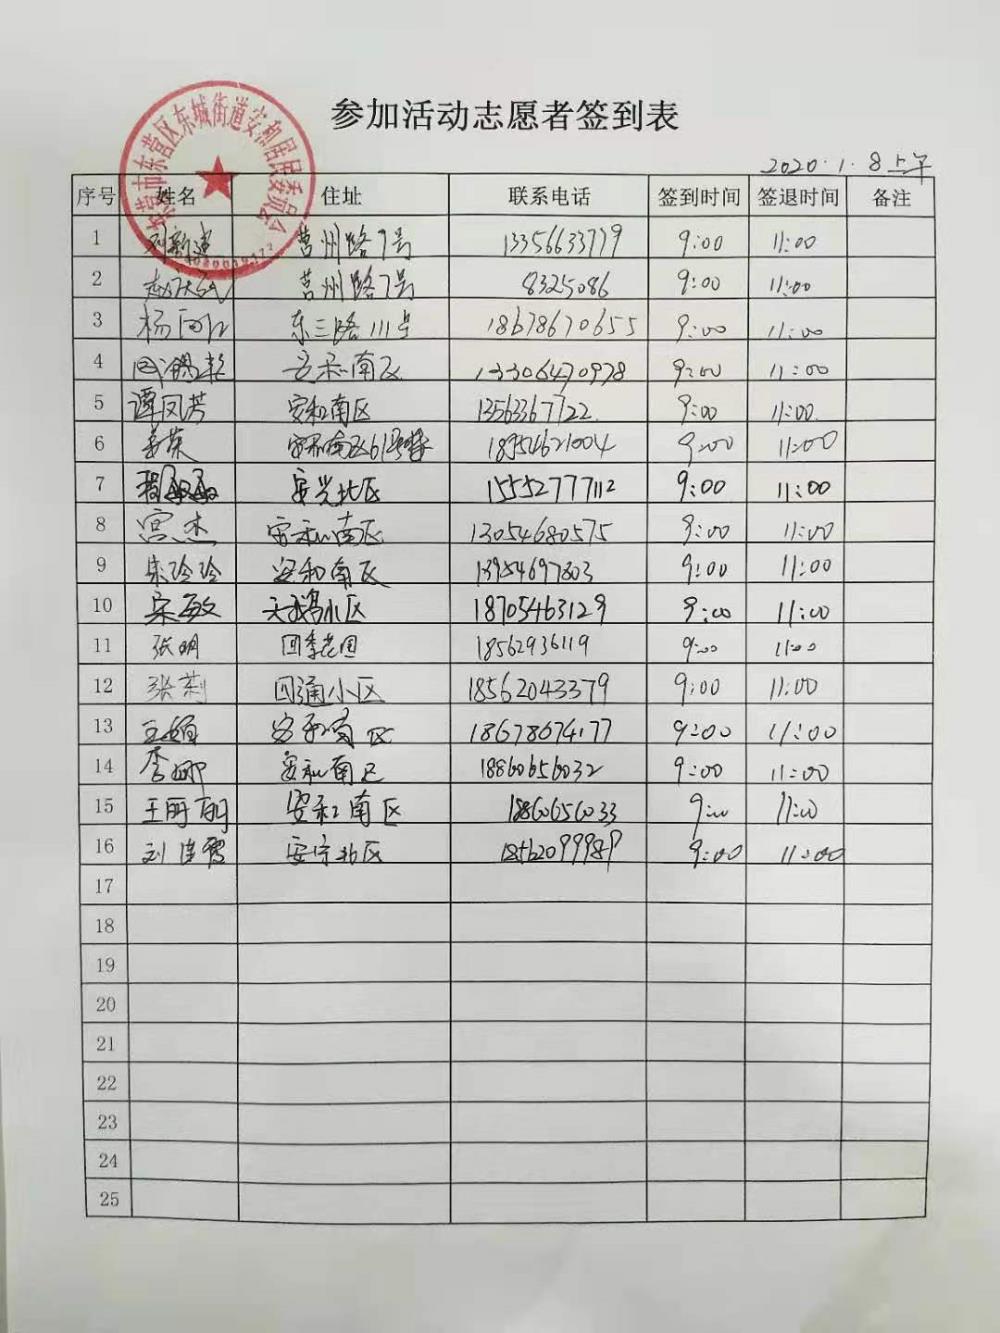 参加活动志愿者签到表
东营市东营区东城街道安和居民委员会
2020.1.8上午
序号 姓名 住址 联系电话 签到时间 签退时间 备注
1 刘新建 莒州路7号 13356633779 9:00 11:00
2 莒州路7号 8325086 9:00 11:00
3 杨 东三路111号 18678670655 9:00 11:00
4 安和南区 13306470978 9:00 11:00
5 谭凤芳 安和南区 13563367722 9:00 11:00
6 姜荣 安和南区61号楼 18954621004 9:00 11:00
7 安兴北区 15552777112 9:00 11:00
8 宫杰 安和南区 13054680575 9:00 11:00
9 朱玲玲 安和南区 13954697803 9:00 11:00
10 宋敏 天鹅湖小区 18705463129 9:00 11:00
11 张明 四季花园 18562936119 9:00 11:00
12 张莉 回通小区 18562043379 9:00 11:00
13 王娟 安和南区 18678674177 9:00 11:00
14 李娜 安和南区 18860656032 9:00 11:00
15 王丽丽 安和南区 18606656033 9:00 11:00
16 刘佳 安宁北区 9:00 11:00
17
18
19
20
21
22
23
24
25